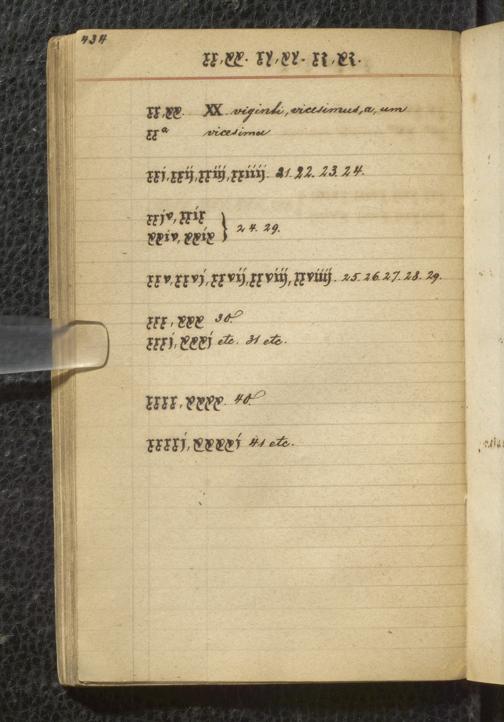 434
xx, xx. xx, xx. xx, xx.
xx, xx. XX viginti, vicesimus, a, um
xxª vicesima
xxj, xxij, xxiij, xxiiij. 21. 22. 23. 24.
xxjv, xxix
xxiv, xxix } 24. 29.
xxv, xxvj, xxvij, xxviij, xxviiij. 25. 26. 27. 28. 29.
xxx, xxx 30.
xxxj, xxxj etc. 31 etc.
xxxx, xxxx. 40.
xxxxj, xxxxj 41 etc.